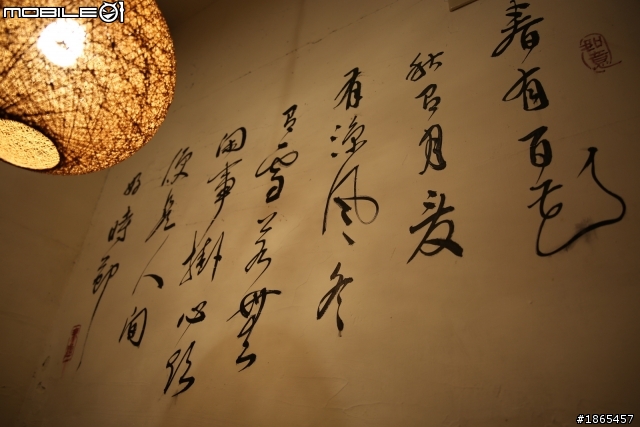 MOBILE01
如意
春有百花
秋有月夏
有涼風冬
有雪若無
閑事掛心頭
便是人間
好時節
#1865457